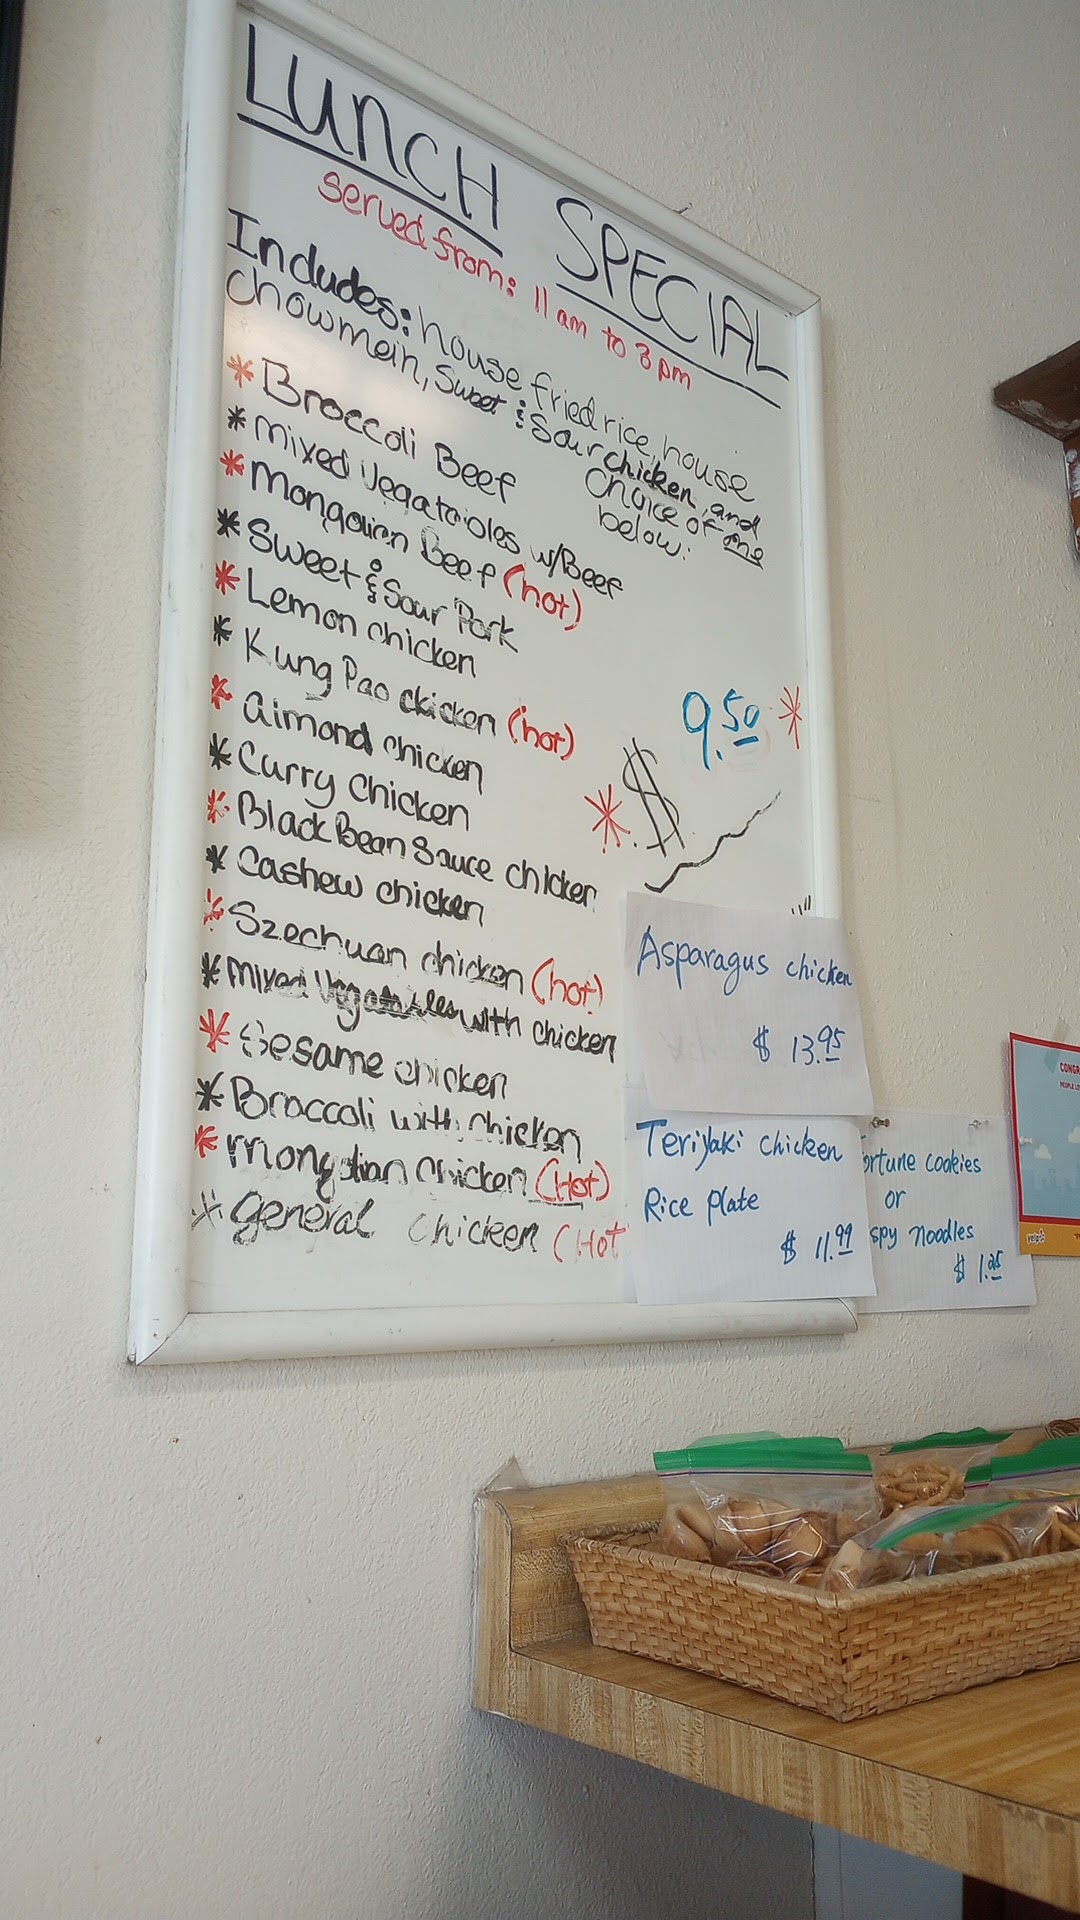 LUNCH SPECIAL
served from: 11 am to 3 pm
Includes: house fried rice, house
chowmein, Sweet & Sour chicken, and
choice of one
below:
* Broccoli Beef
* mixed Vegatables w/Beef
* Mongolian Beef (hot)
* Sweet & Sour Pork
* Lemon chicken
* Kung Pao chicken (hot)
* almond chicken
* Curry chicken
* Black Bean Sauce chicken
* Cashew chicken
* Szechuan chicken (hot)
* mixed Vegatables with chicken
* Sesame chicken
* Broccoli with chicken
* mongolian chicken (Hot)
* general chicken (Hot
* $ 9.50 *
Asparagus chicken
$ 13.95
Teriyaki chicken
Rice plate
$ 11.99
ortune cookies
or
spy noodles
$ 1.25
CONGR
PEOPLE LO
yelp